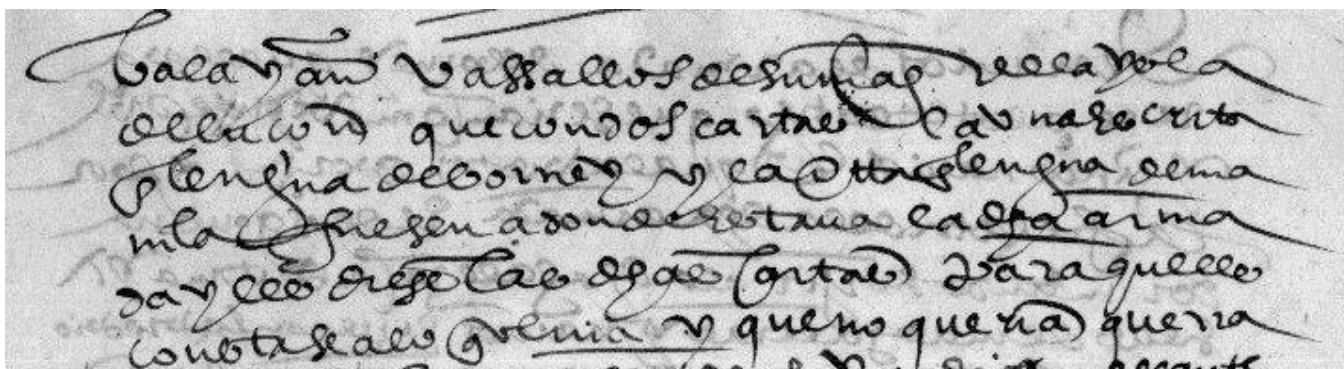 balayan vassallos de su magd de la ysla
de luçon que con dos cartas la una escrita
en lengua de borney y la otra en lengua de ma
nila fuesen a donde estava la dha arma
da y les diese las dhas cartas para que les
constase a lo que venia y que no queria guerra